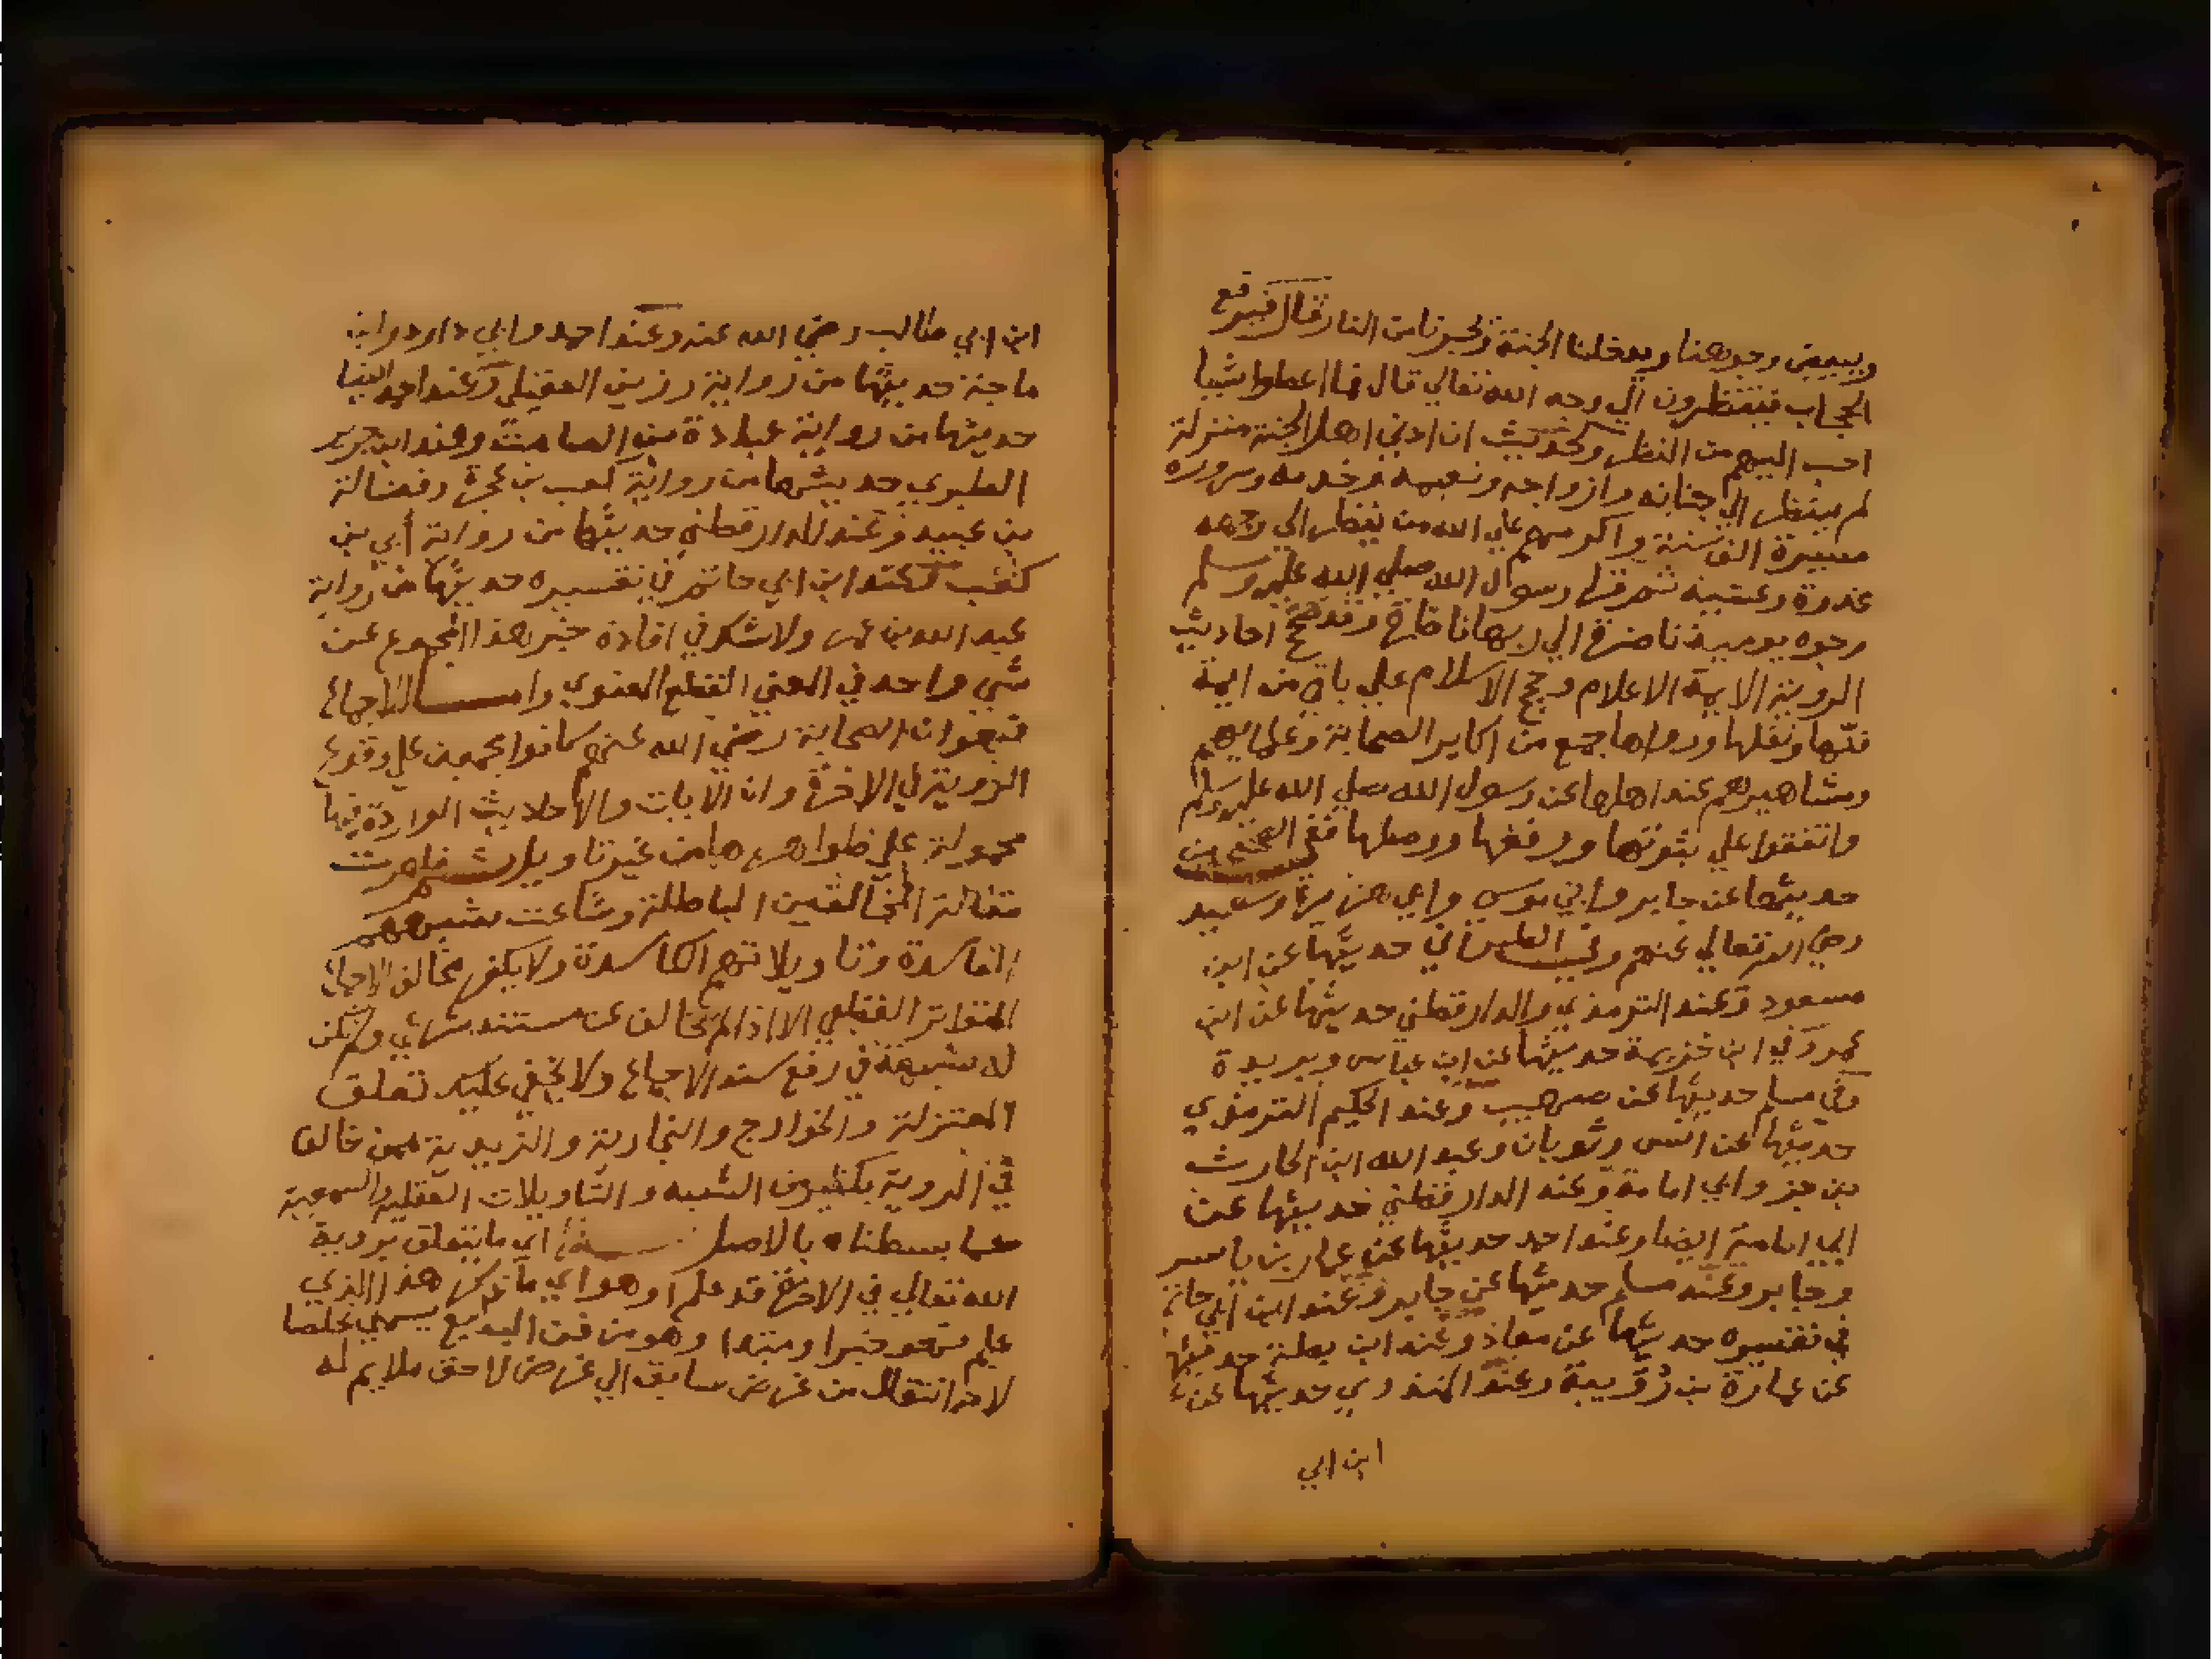 ويبيض وجوهنا ويدخلنا الجنة ويجيرنا من النار قال فيرفع
الحجاب فينظرون الي وجه الله تعالي قال فما اعطوا شيا
احب اليهم من النظر وكحديث ان ادني اهل الجنة منزلة
لم ينظر الي جنانه وازواجه ونعيمه وخدمه وسروره
مسيرة الف سنة واكرمهم علي الله من ينظر الي وجهه
غدوة وعشية ثم قرا رسول الله صلي الله عليه وسلم
وجوه يوميذ ناضرة الي ربها ناظرة وقد صحح احاديث
الروية الايمة الاعلام وحجج الاسلام علي باق من ايمة
فنها ونقلها ورواها جمع من اكابر الصحابة وعلمايهم
ومشاهيرهم عند اهلها عن رسول الله صلي الله عليه وسلم
واتفقوا علي ثبوتها ورفعها ووصلها ففي الصحيحين
حديثها عن جابر وابي موسي وابي هريرة وسعيد
رضي الله تعالي عنهم وفي الطبراني حديثها عن ابن
مسعود وعند الترمذي والدارقطني حديثها عن ابن
عمر وفي ابن خزيمة حديثها عن ابن عباس وبريدة
وفي مسلم حديثها عن صهيب وعند الحكيم الترمذي
حديثها عن انس وثوبان وعبد الله ابن الحارث
بن جزء وابي امامة وعند الدارقطني حديثها عن
ابي امامة ايضا وعند احمد حديثها عن عمار بن ياسر
وجابر وعند مسلم حديثها عن جابر وعند ابن ابي حاتم
في تفسيره حديثها عن معاذ وعند ابن بطة حديثها
عن عمارة بن رويبة وعند حديثها عن
ابن ابي
ابن ابي طالب رضي الله عنه وعند احمد وابي داود وابن
ماجة حديثها من رواية رزين العقيلي وعند احمد ايضا
حديثها من رواية عبادة بن الصامت وعند ابن جرير
الطبري حديثها من رواية كعب بن عجرة وفضالة
بن عبيد وعند الدارقطني حديثها من رواية أبي بن
كعب وعند ابن ابي حاتم في تفسيره حديثها من رواية
عبد الله بن عمر ولا شك في افادة خبر هذا المجموع عن
شي واحد في المعني القطع المعنوي واما الاجماع
فهو ان الصحابة رضي الله عنهم كانوا مجمعين علي وقوع
الروية في الاخرة وان الايات والاحاديث الواردة فيها
محمولة علي ظواهرها من غير تاويل ثم ظهرت
مقالة المخالفين الباطلة وشاعت شبههم
الفاسدة وتاويلاتهم الكاسدة ولا يكفر مخالف الاجماع
المتواتر القطعي الا اذا لم تخالف عن مستند شرعي ولم تكن
له شبهة في رفع سند الاجماع ولا يخفي عليك تعلق
المعتزلة والخوارج والنجارية والزيدية ممن خالف
في الروية بكثير من الشبه والتاويلات العقلية والسمعية
مما بسطناه بالاصل اي ما يتعلق بروية
الله تعالي في الاخرة قد علم او هو اي ما ذكر هذا الذي
علم فهو خبرا ومبتدا وهو من فن البديع يسمي مخلصا
لانه انتقال من غرض سابق الي غرض لاحق ملايم له